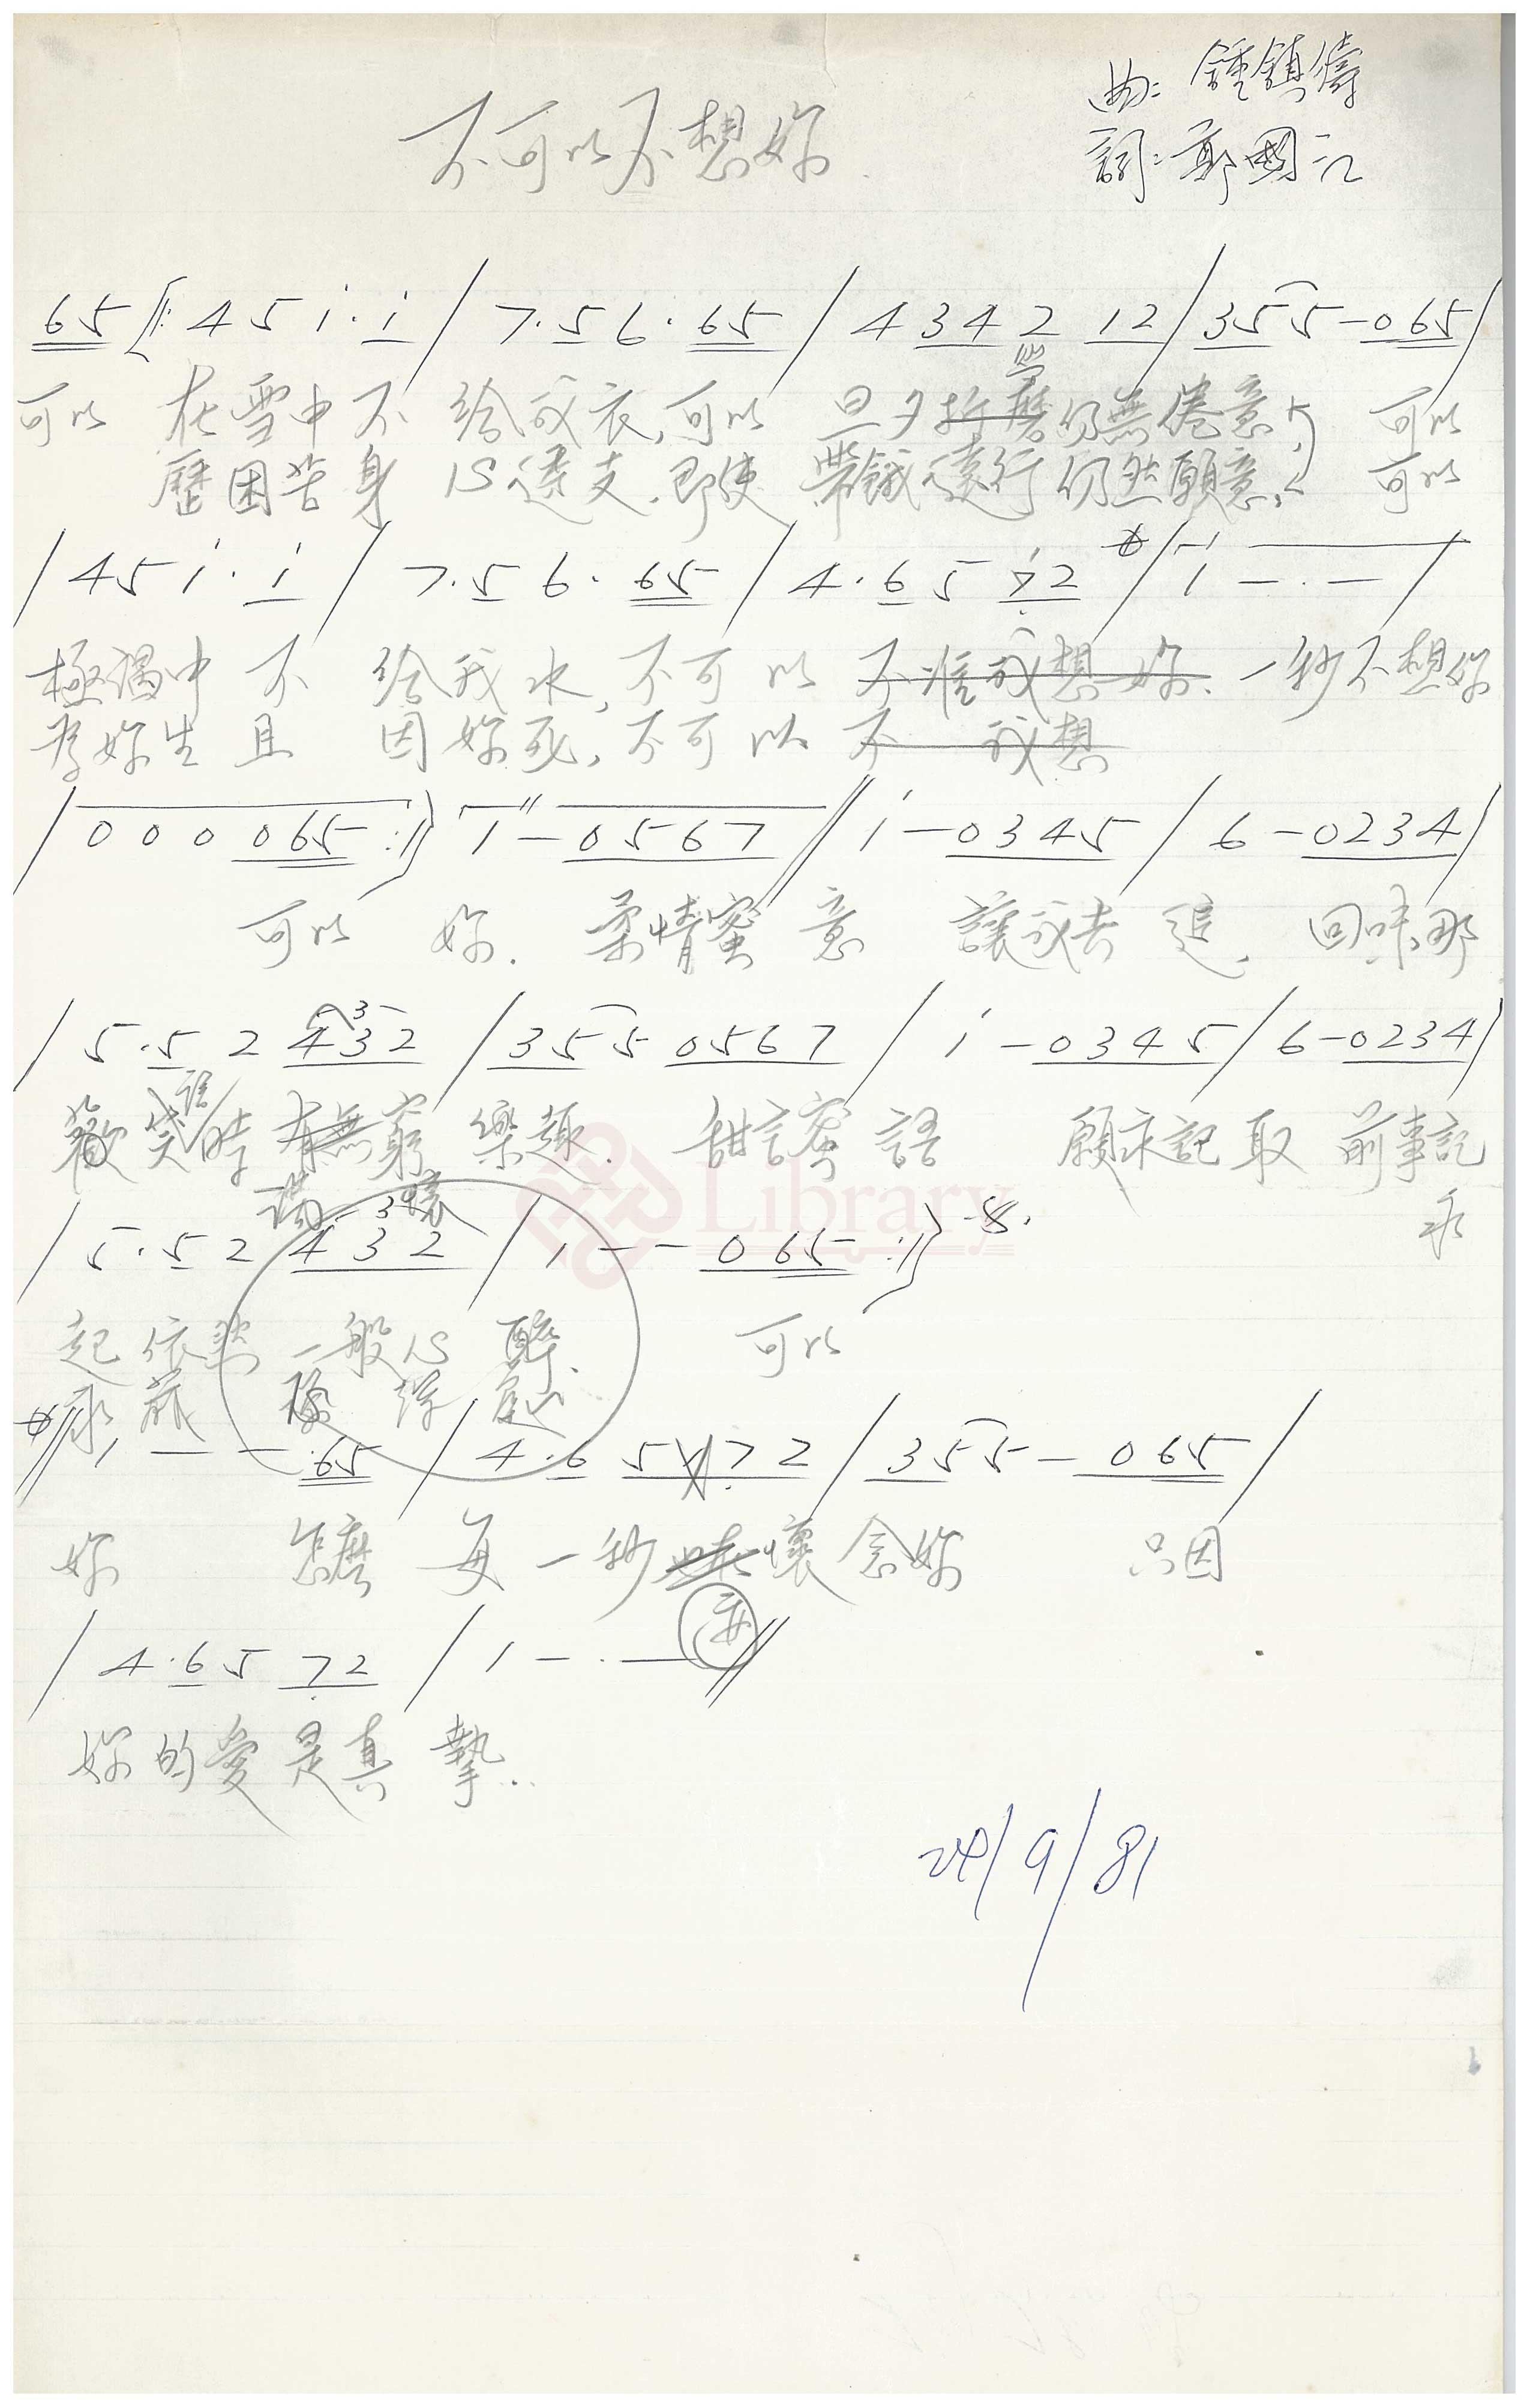 曲: 鍾鎮濤
不可以不想妳
詞: 鄭國江
65 ‖: 4 5 i · i / 7 · 5 6 · 65 / 4 3 4 2 12 / 3 5 5 - 0 65 /
可以 在雪中不 給我衣, 可以 旦夕折磨仍無倦意, 可以
歷困苦身 心透支, 即使 帶餓遠行仍然願意, 可以
/ 4 5 i · i / 7 · 5 6 · 65 / 4 · 6 5 7 2 / 1 - · - /
極渴中 不 給我水, 不可以 不准我想妳. 一秒不想你
為妳生且 因妳死, 不可以 不 我想
/ 0 0 0 0 65 :‖ 1 - 0 5 6 7 // i - 0 3 4 5 / 6 - 0 2 3 4 /
可以 妳. 柔情蜜意 讓我去追, 回味那
/ 5 · 5 2 4 3 2 / 3 5 5 0 5 6 7 / i - 0 3 4 5 / 6 - 0 2 3 4 /
歡笑時有無窮樂趣. 甜言蜜語 願永記取 前事記
永
/ 5 · 5 2 4 3 2 / 1 - - 0 65 :‖ 
起依然 一般心醉. 可以
// 1 - - · 65 / 4 · 6 5 7 2 / 3 5 5 - 0 65 /
妳 怎麼 每一秒 懷念妳 只因
/ 4 · 6 5 7 2 / 1 - · - //
妳的愛是真摯..
24/9/81
Library